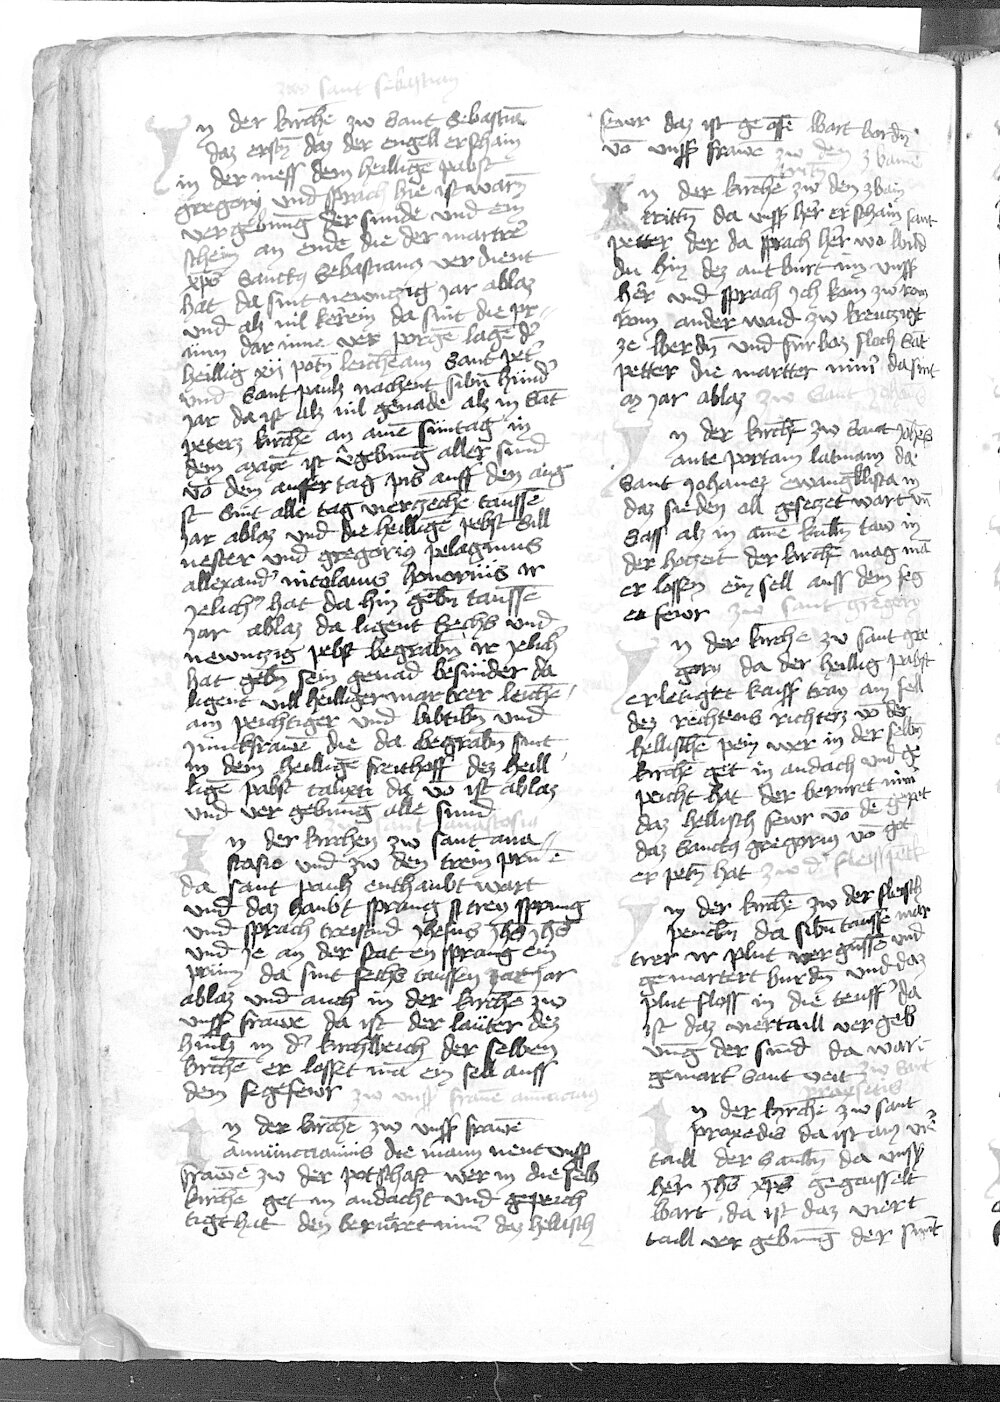 zw sant sebastian
In der kirchē zw sant Sebastiā
daz erstñ daz der engell erschain
in der mess dem heilligē pabst
gregory und sprach hie ist warñ
vergebung der sunde und ein
schein an ende die der martrer
xps Sanctus Sebastianus verdient
hat da sint newnczig jar ablaz
und als vil kerein da sint die pr
unn dar inne ver porgē lagē dʼ
heillig xij potñ leicheam Sant petʼ
und Sant pauls nachent sibñ hundʼ
jar da ist als vil genade als in Sāt
peters kirchē an ainē suntag in
dem mayē ist vʼgebung aller sund
vō dem auffertag pis auff den aug
st sint alle tag vierzechē taussē
jar ablaz und die heilligē pebst Sill
uester und gregorius pelagius
allexandʼ nicolaus honorius ir
jelichʼ hat da hin gebñ taussē
jar ablaz da ligent Sechs und
newnczig pebst begrabñ ir jelichʼ
hat gebñ sein genad besunder da
ligent vill heilliger martrer leichē
am peichtiger und und
junckfrawē die da begrabñ sint
in dem heilligē freithoff dez heil
ligē pabst calixti da vō ist ablaz
und ver gebung alle sund
zw sant anastasio
In der kirchen zw sant ana
stasio und zw den trein prunē
da sant pauls enthaubt wart
und daz haubt sprang trey sprung
und sprach treistund jhesus jhs jhs
und je an der stat en sprang ein
prunn da sint sechs taussen jar
ablaz und auch in der kirchē zw
unssʼ frawē da ist der lauter dez
hymls in dʼ kirchweich der selben
kirchē er losset mā ein sell auss
dem fegefewr
zw unssʼ frawē annunciaciō
In der kirchē zw unssʼ frawē
annunciacionis die mann nent unssʼ
frawē zw der potschaft wer in die selb
kirchē get in andacht und gepeich
tiget hat den beruret nimʼ daz hellisch
fewr daz ist ge offē wart wordñ
vō unssʼ frawē
zw dem
tritñ
In der kirchē zw den zwain
trittñ da unssʼ herʼ er schain sant
petter der da sprach herʼ wo wild
du hin dez ant wurt im unssʼ
herʼ und sprach Ich kom zw rom
rom ander waid zw kreuczigt
ze werdñ und furbaz floch Sāt
petter die martter nimʼ da sint
an jar ablaz
zw Sant Johans
In der kirchē zw Sant johēs
ante portam latinam da
Sant Johanes ewangelista in
daz sieden oll gesetzet wart vñ
Sass als in ainē kulñ taw in
der hochzeit der kirchē mag mā
er lossen ein sell auss dem feg
e fewr
zw sant gregory
In der kirchē zw sant gre
gory da der heillig pabst
erledigket kaissʼ tray am sell
dez rechtens richters vō der
hellischē pein wer in der selbñ
kirchē get in andach und ge
peicht hat der beruret nimʼ
daz hellisch fewr vō dē gepet
daz Sanctus gregorius vō got
er petñ hat
zw dʼ fleischpenk
In der kirchē zw der fleisch
penckñ da sibñ taussē mar
trer ir plut ver gussē und
gemartert wurdñ und daz
plut floss in die teuffʼ da
ist daz viertaill ver geb
ung der sund da warñ
gemart Sant Veit
zw Sant
praxedis
In der kirchē zw sant
praxedis da ist ain virʼ
taill der Saulñ da unssʼ
herʼ jhs xps gegaisselt
wart da ist daz viert
taill ver gebung der sunt